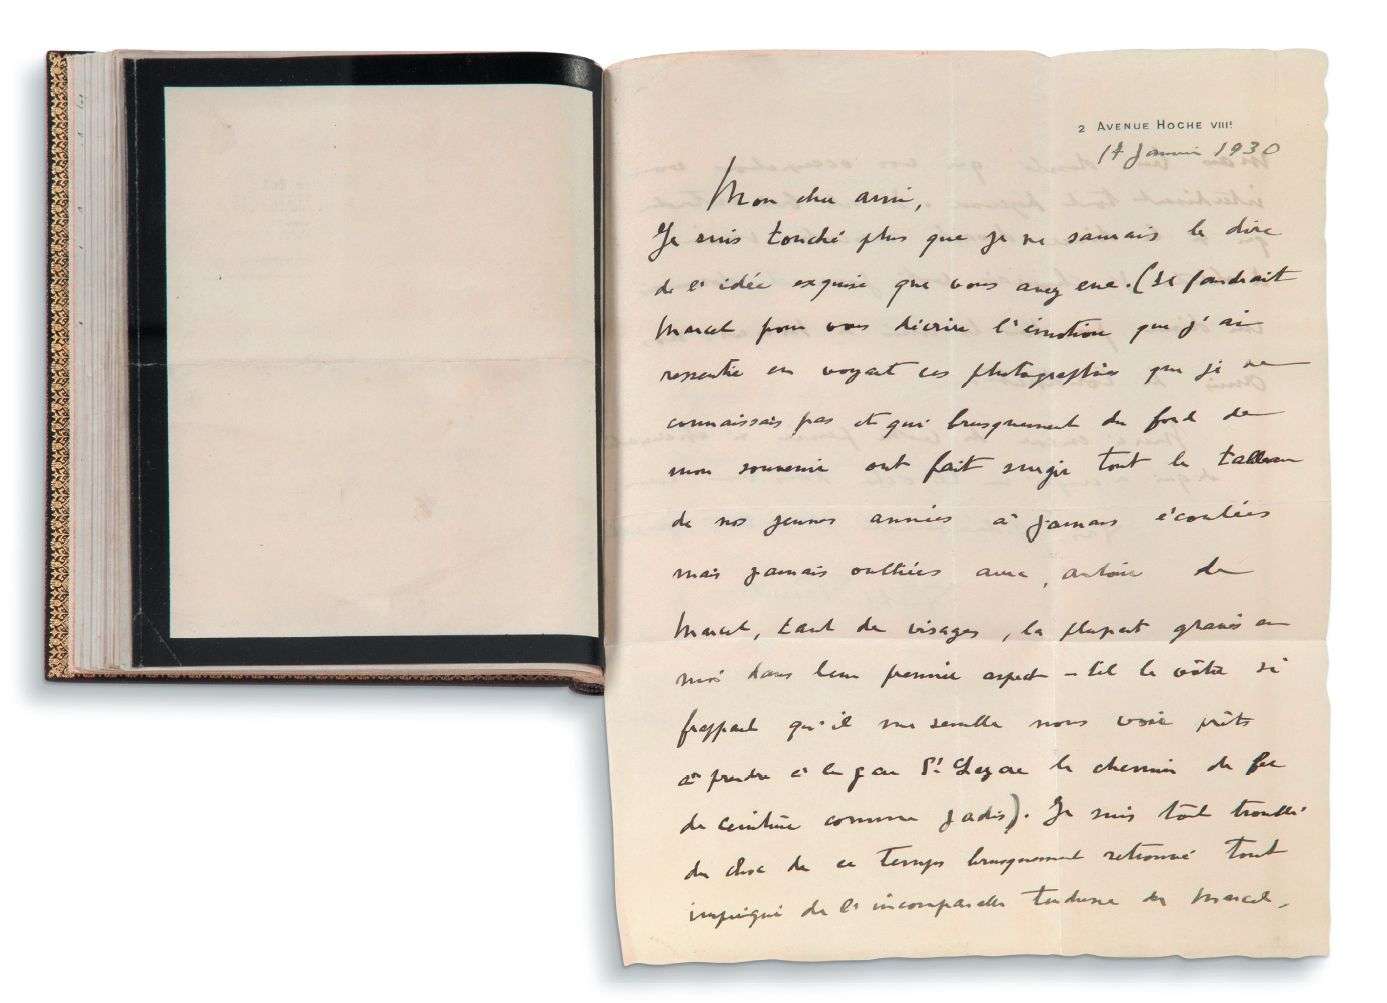 2 AVENUE HOCHE VIIIe
17 Janvier 1930
Mon cher ami,
Je suis touché plus que je ne saurais le dire
de l'idée exquise que vous avez eue. (Il faudrait
Marcel pour vous décrire l'émotion que j'ai
ressentie en voyant ces photographies que je ne
connaissais pas et qui brusquement du fond de
mon souvenir ont fait surgir tout le tableau
de nos jeunes années à jamais écoulées
mais jamais oubliées avec, autour de
Marcel, tant de visages, la plupart gravés en
moi dans leur premier aspect - tel le vôtre si
frappant qu'il me semble nous voir prêts
à prendre à la gare St Lazare le chemin de fer
de ceinture comme jadis). Je suis tout troublé
du choc de ce temps brusquement retrouvé tout
imprégné de l'incomparable tendresse de Marcel,